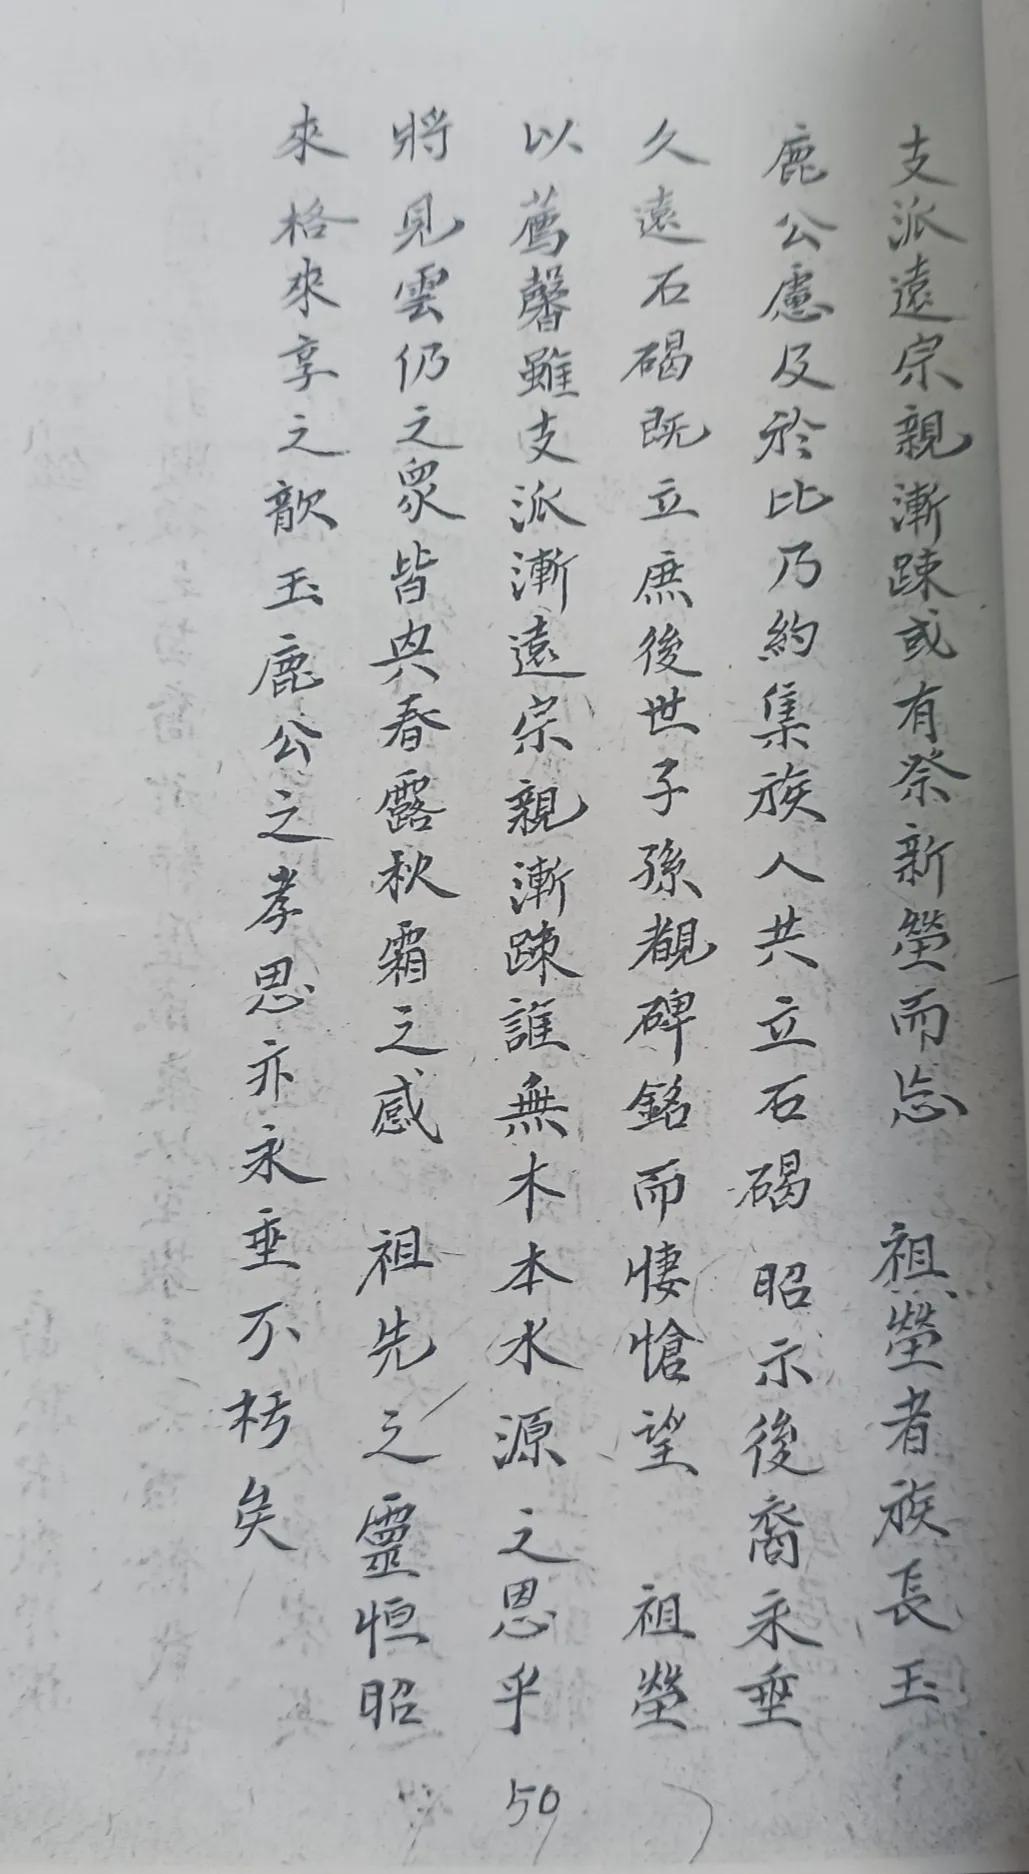 支派遠宗親漸踈或有祭新塋而忘　祖塋者族長玉
鹿公慮及於比乃約集族人共立石碣昭示後裔永垂
久遠石碣既立庶後世子孫覩碑銘而悽愴望　祖塋
以薦馨雖支派漸遠宗親漸踈誰無木本水源之思乎
將見雲仍之眾皆與春露秋霜之感　祖先之靈恒昭
來格來享之歆玉鹿公之孝思亦永垂不朽矣
50